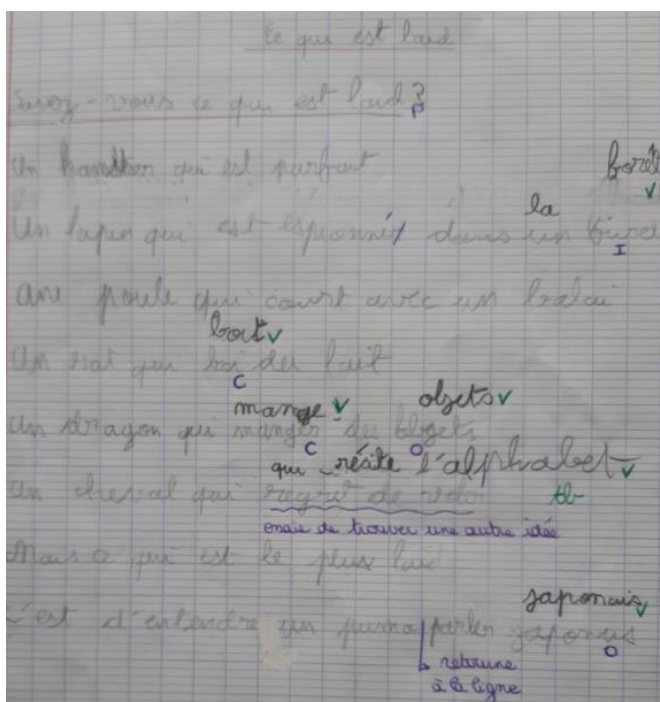 Ce qui est laid
Savez-vous ce qui est laid ?
P
Un qui est parfait
forêt
la
Un lapin qui est espionné dans un
I
Une poule qui court avec un balai
boit
Un rat qui boi du lait
C
mange objets
Un dragon qui manger des blogets
C O
qui récite l'alphabet
Un cheval qui regret de
tb
essaie de trouver une autre idée
Mais ce qui est le plus laid
japonais
C'est d'entendre un puma parler japonais
O
retourne
à la ligne